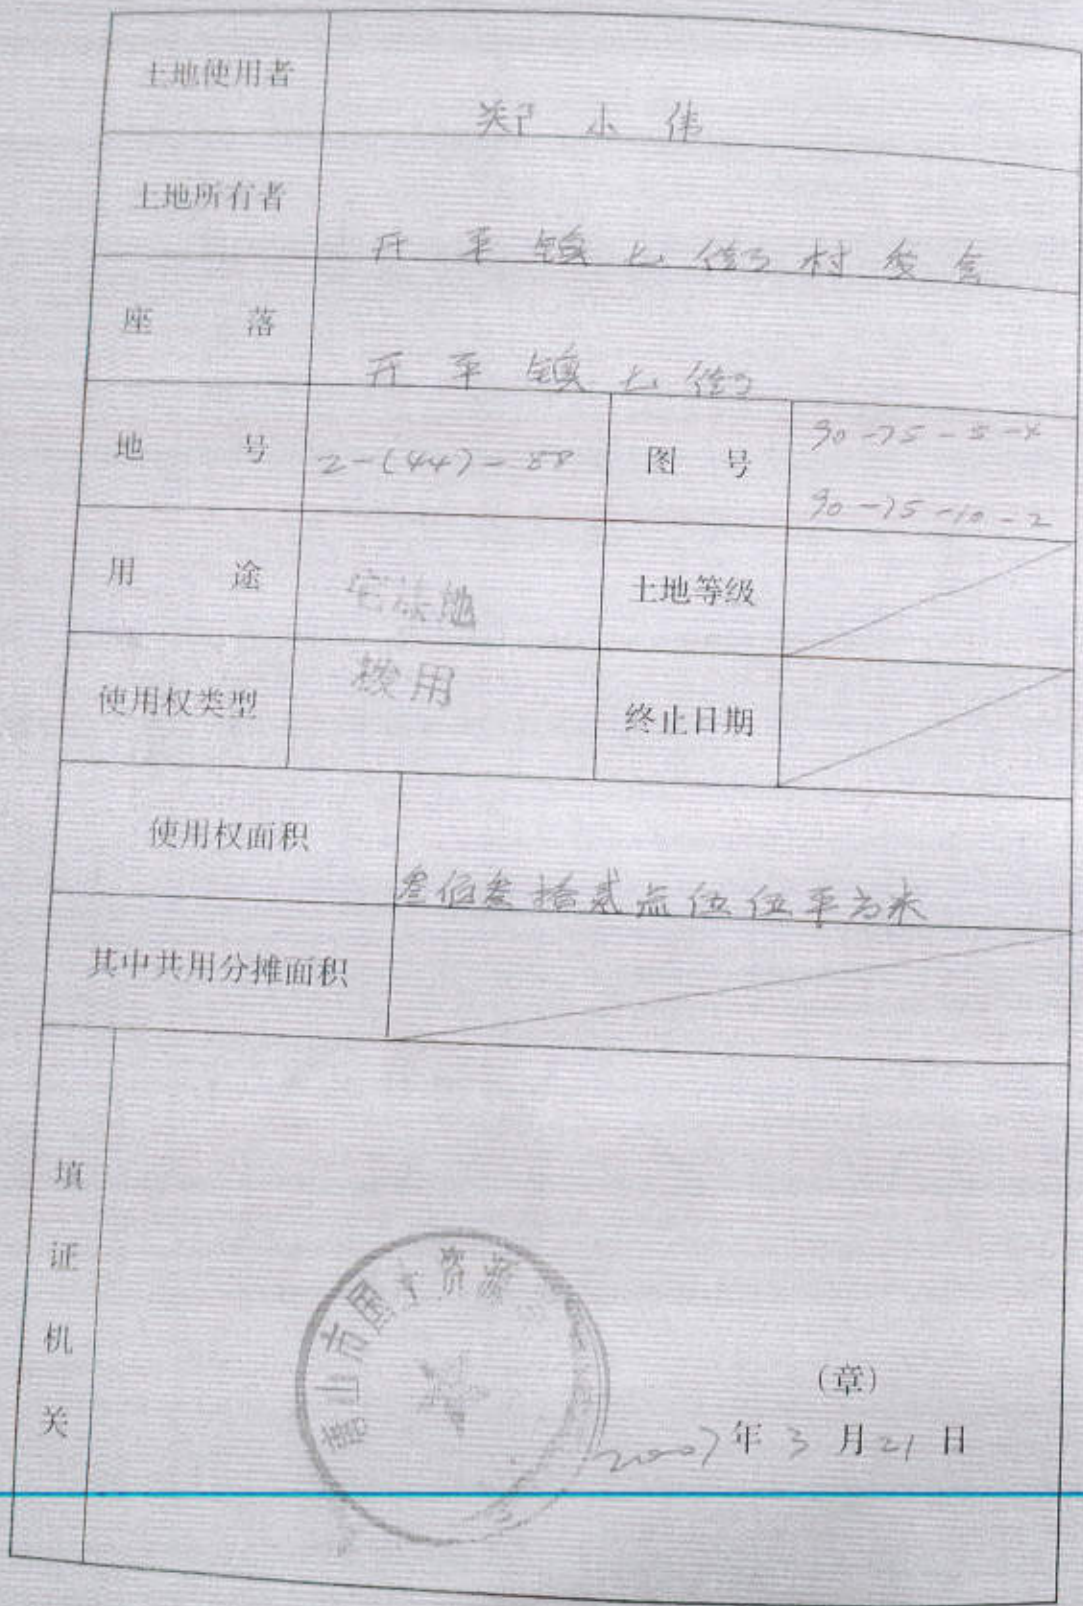 土地使用者
郑小伟
土地所有者
开平镇七街村委会
座 落
开平镇七街
地 号
2-(44)-88
图 号
90-75-5-4
90-75-10-2
用 途
宅基地
土地等级
使用权类型
拨用
终止日期
使用权面积
叁佰叁拾贰点伍伍平方米
其中共用分摊面积
填证机关
唐山市国土资源
(章)
2007年3月21日